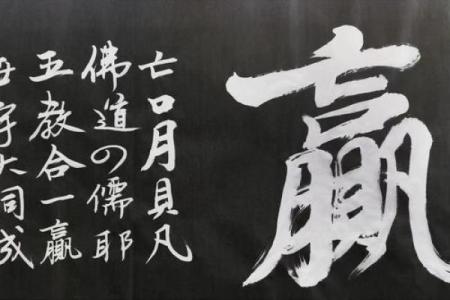 贏
亡口月貝凡
佛道の儒耶
五教合一贏
大同成